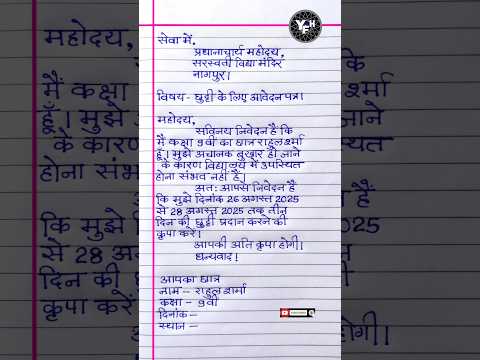 सेवा में,
प्रधानाचार्य महोदय,
सरस्वती विद्या मंदिर
नागपुर।
विषय- छुट्टी के लिए आवेदन पत्र।
महोदय,
सविनय निवेदन है कि
मैं कक्षा 9वीं का छात्र राहुल शर्मा
हूँ। मुझे अचानक बुखार हो जाने
के कारण विद्यालय में उपस्थित
होना संभव नहीं है।
अतः आपसे निवेदन है
कि मुझे दिनांक 26 अगस्त 2025
से 28 अगस्त 2025 तक तीन
दिन की छुट्टी प्रदान करने की
कृपा करें।
आपकी अति कृपा होगी।
धन्यवाद!
आपका छात्र
नाम – राहुल शर्मा
कक्षा – 9वीं
दिनांक –
स्थान –